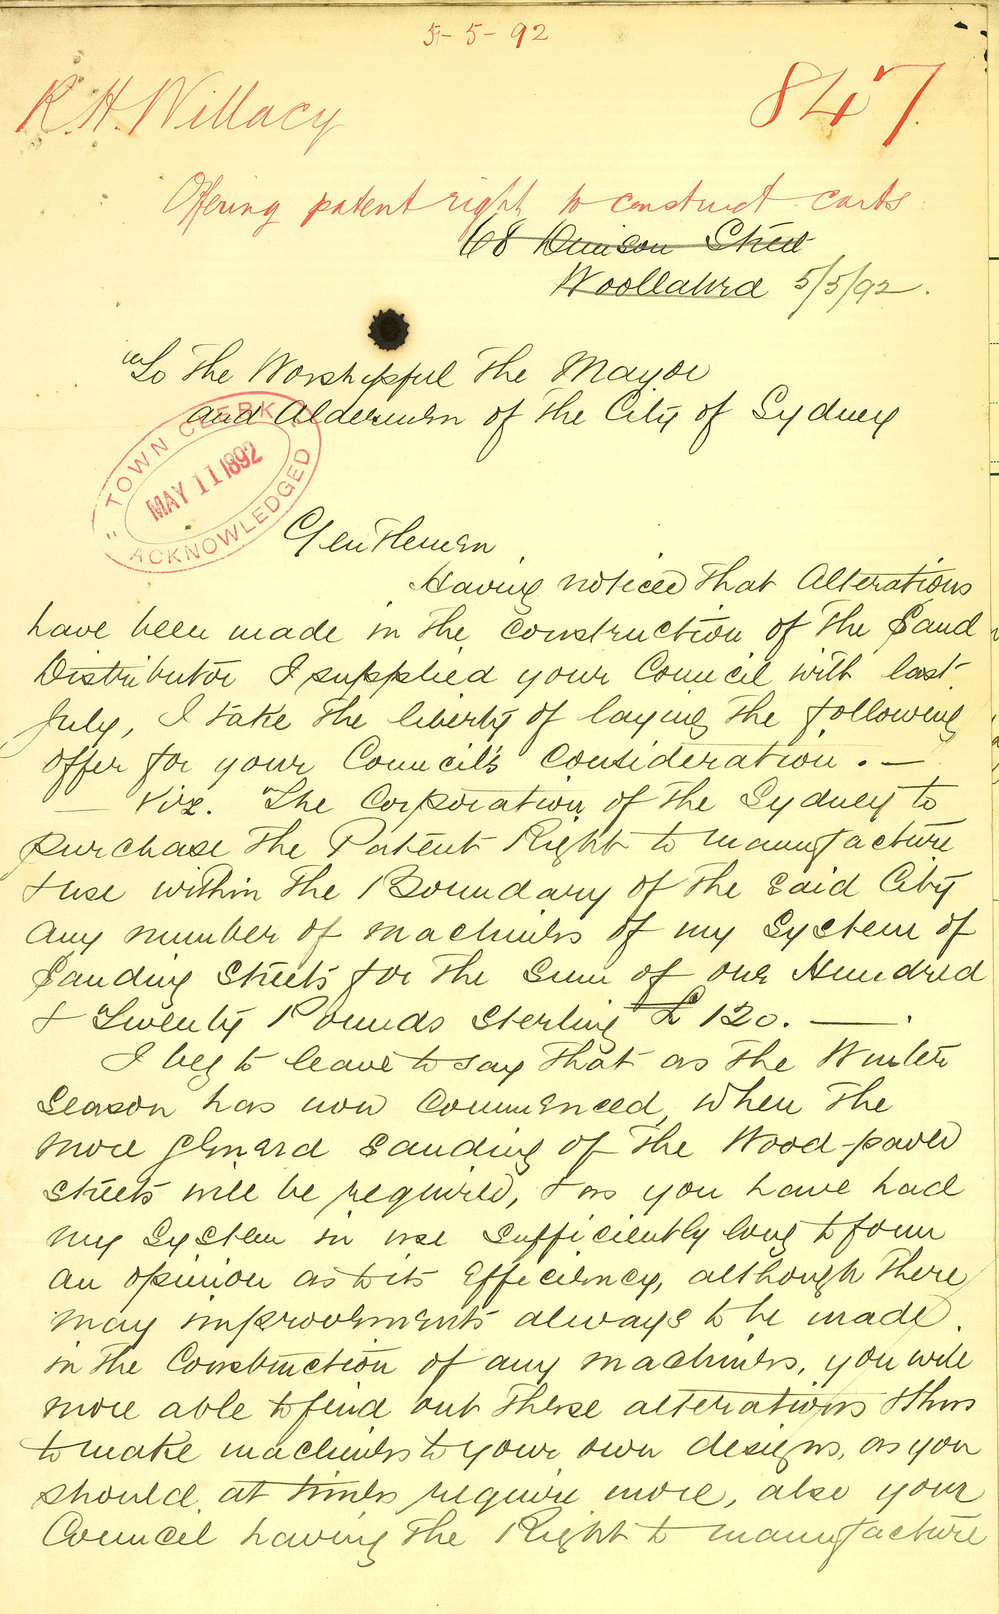 5-5-92
R.H. Willacy
847
Offering patent right to construct carts
68 Denison Street
Woollahra 5/5/92.
"To The Worshipful The Mayor
and Aldermen of The City of Sydney
"TOWN CLERK"
MAY 11 1892
ACKNOWLEDGED
Gentlemen
Having noticed that Alterations
have been made in the construction of the Sand
Distributor I supplied your Council with last
July, I take the liberty of laying the following
offer for your Council's consideration. —
— Viz. The Corporation of the Sydney to
purchase the Patent Right to manufacture
& use within the Boundary of the said City
any number of machines of my system of
Sanding Streets for the sum of one Hundred
& Twenty Pounds Sterling £120. —.
I beg to leave to say that as the Winter
Season has now commenced, when the
more general sanding of the Wood-paved
streets will be required, & as you have had
my system in use sufficiently long to form
an opinion as to its efficiency, although there
may improvements always to be made
in the construction of any machines, you will
more able to find out these alterations & thus
to make machines to your own designs, as you
should at times require more, also your
Council having the Right to manufacture